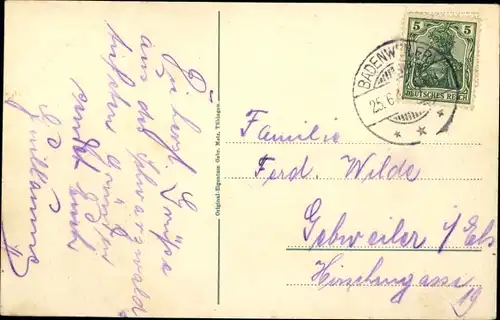 Die herzl. Grüße
aus des Schwarzwald
tiefsten Gründen
sendet Euch
Original-Eigentum Gebr. Metz, Tübingen
BADENWEILER
25.6.
5 5
DEUTSCHES REICH
Familie
Ferd. Wilde
Gebweiler i/Els
Hirschengasse
19